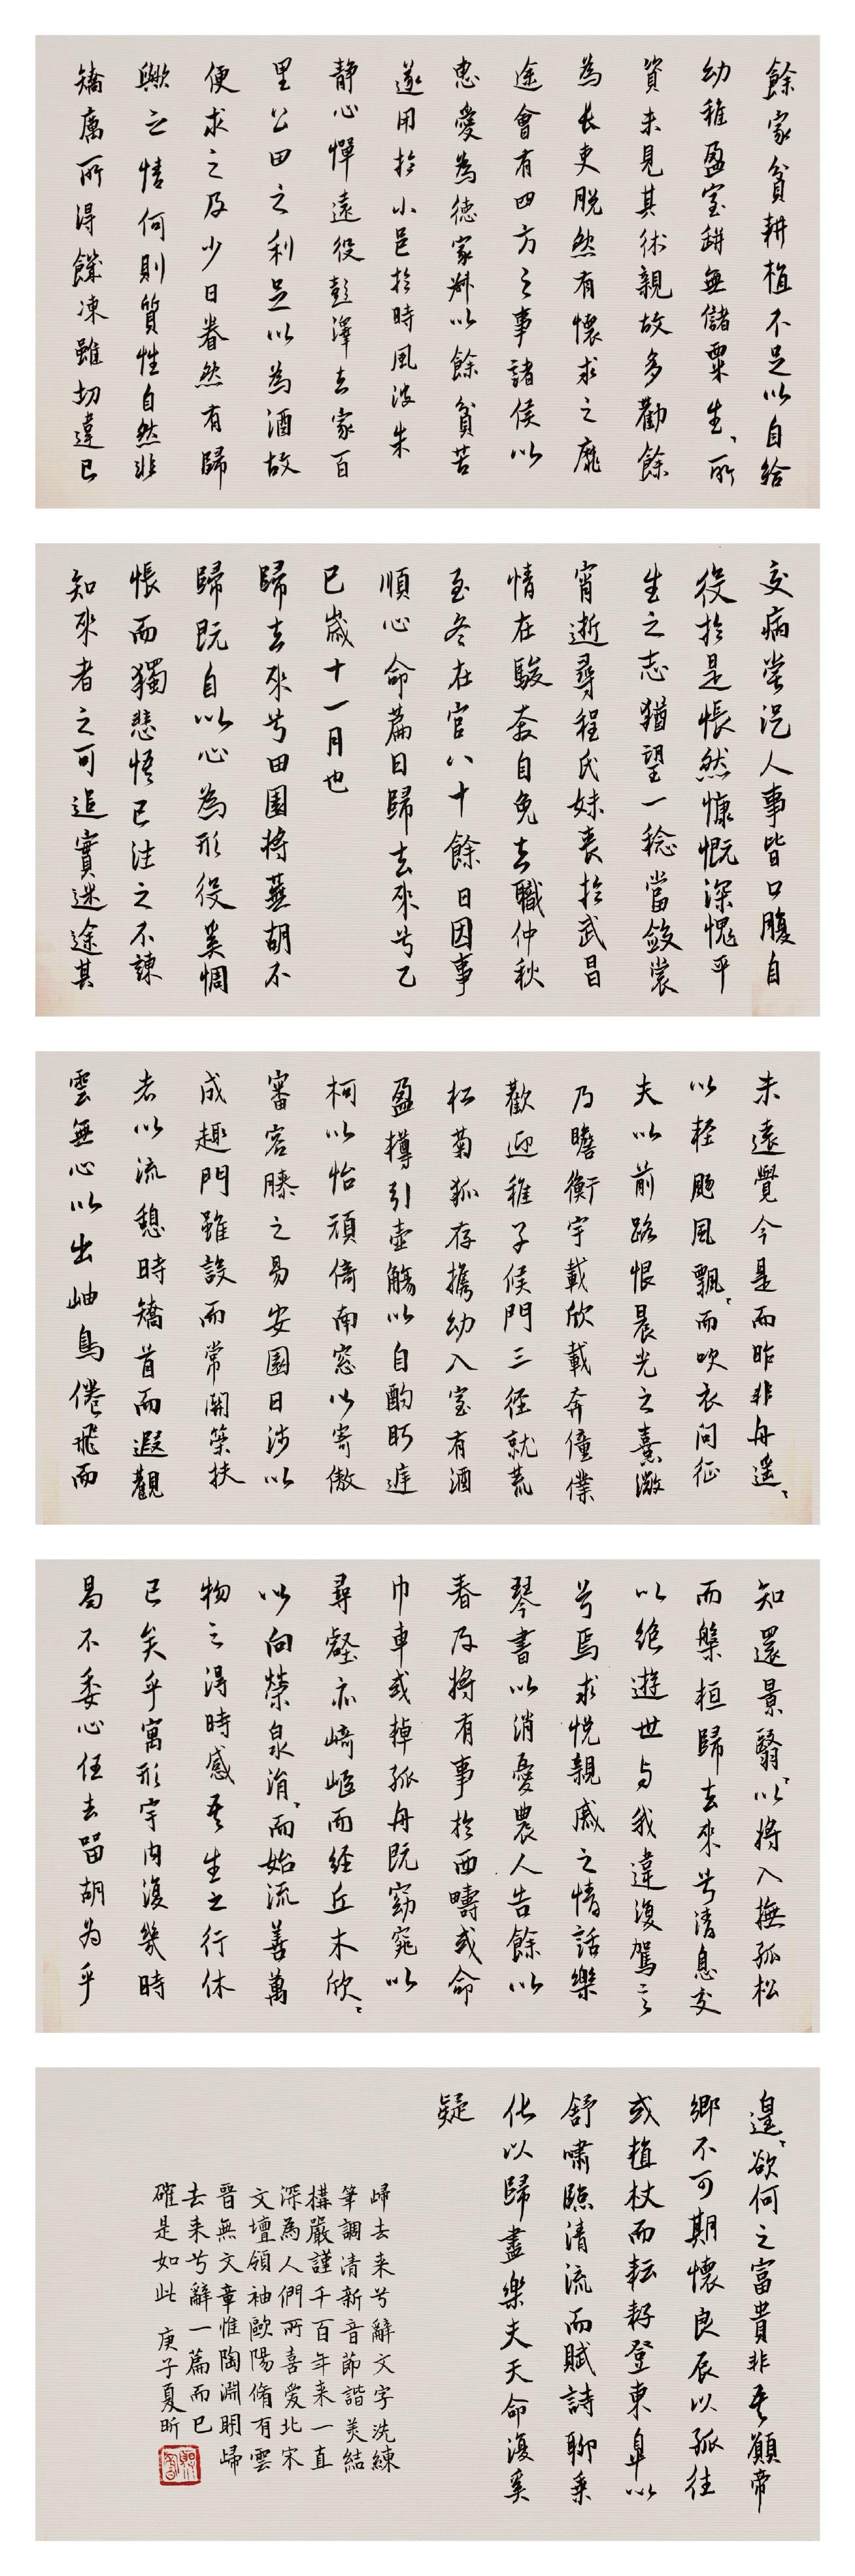 餘家貧耕植不足以自給
幼稚盈室缾無儲粟生〻所
資未見其術親故多勸餘
為長吏脫然有懷求之靡
途會有四方之事諸侯以
惠愛為德家叔以餘貧苦
遂用於小邑於時風波未
靜心憚遠役彭澤去家百
里公田之利足以為酒故
便求之及少日眷然有歸
歟之情何則質性自然非
矯厲所得饑凍雖切違已
交病嘗從人事皆口腹自
役於是悵然慷慨深愧平
生之志猶望一稔當斂裳
宵逝尋程氏妹喪於武昌
情在駿奔自免去職仲秋
至冬在官八十餘日因事
順心命篇曰歸去來兮乙
巳歲十一月也
歸去來兮田園將蕪胡不
歸既自以心為形役奚惆
悵而獨悲悟已往之不諫
知來者之可追實迷途其
未遠覺今是而昨非舟遥〻
以輕颺風飄〻而吹衣問征
夫以前路恨晨光之熹微
乃瞻衡宇載欣載奔僮僕
歡迎稚子候門三徑就荒
松菊猶存攜幼入室有酒
盈樽引壺觴以自酌眄庭
柯以怡顏倚南窓以寄傲
審容膝之易安園日涉以
成趣門雖設而常關策扶
老以流憩時矯首而遐觀
雲無心以出岫鳥倦飛而
知還景翳〻以將入撫孤松
而盤桓歸去來兮請息交
以絕遊世与我違復駕言
兮焉求悅親戚之情話樂
琴書以消憂農人告餘以
春及將有事於西疇或命
巾車或棹孤舟既窈窕以
尋壑亦崎嶇而經丘木欣〻
以向榮泉涓〻而始流善萬
物之得時感吾生之行休
已矣乎寓形宇內復幾時
曷不委心任去留胡為乎
遑〻欲何之富貴非吾願帝
鄉不可期懷良辰以孤往
或植杖而耘耔登東皋以
舒嘯臨清流而賦詩聊乘
化以歸盡樂夫天命復奚
疑
歸去来兮辭文字洗練
筆調清新音節諧美結
構嚴謹千百年来一直
深為人們所喜愛北宋
文壇領袖歐陽脩有雲
晉無文章惟陶淵明歸
去来兮辭一篇而已
確是如此 庚子夏昕